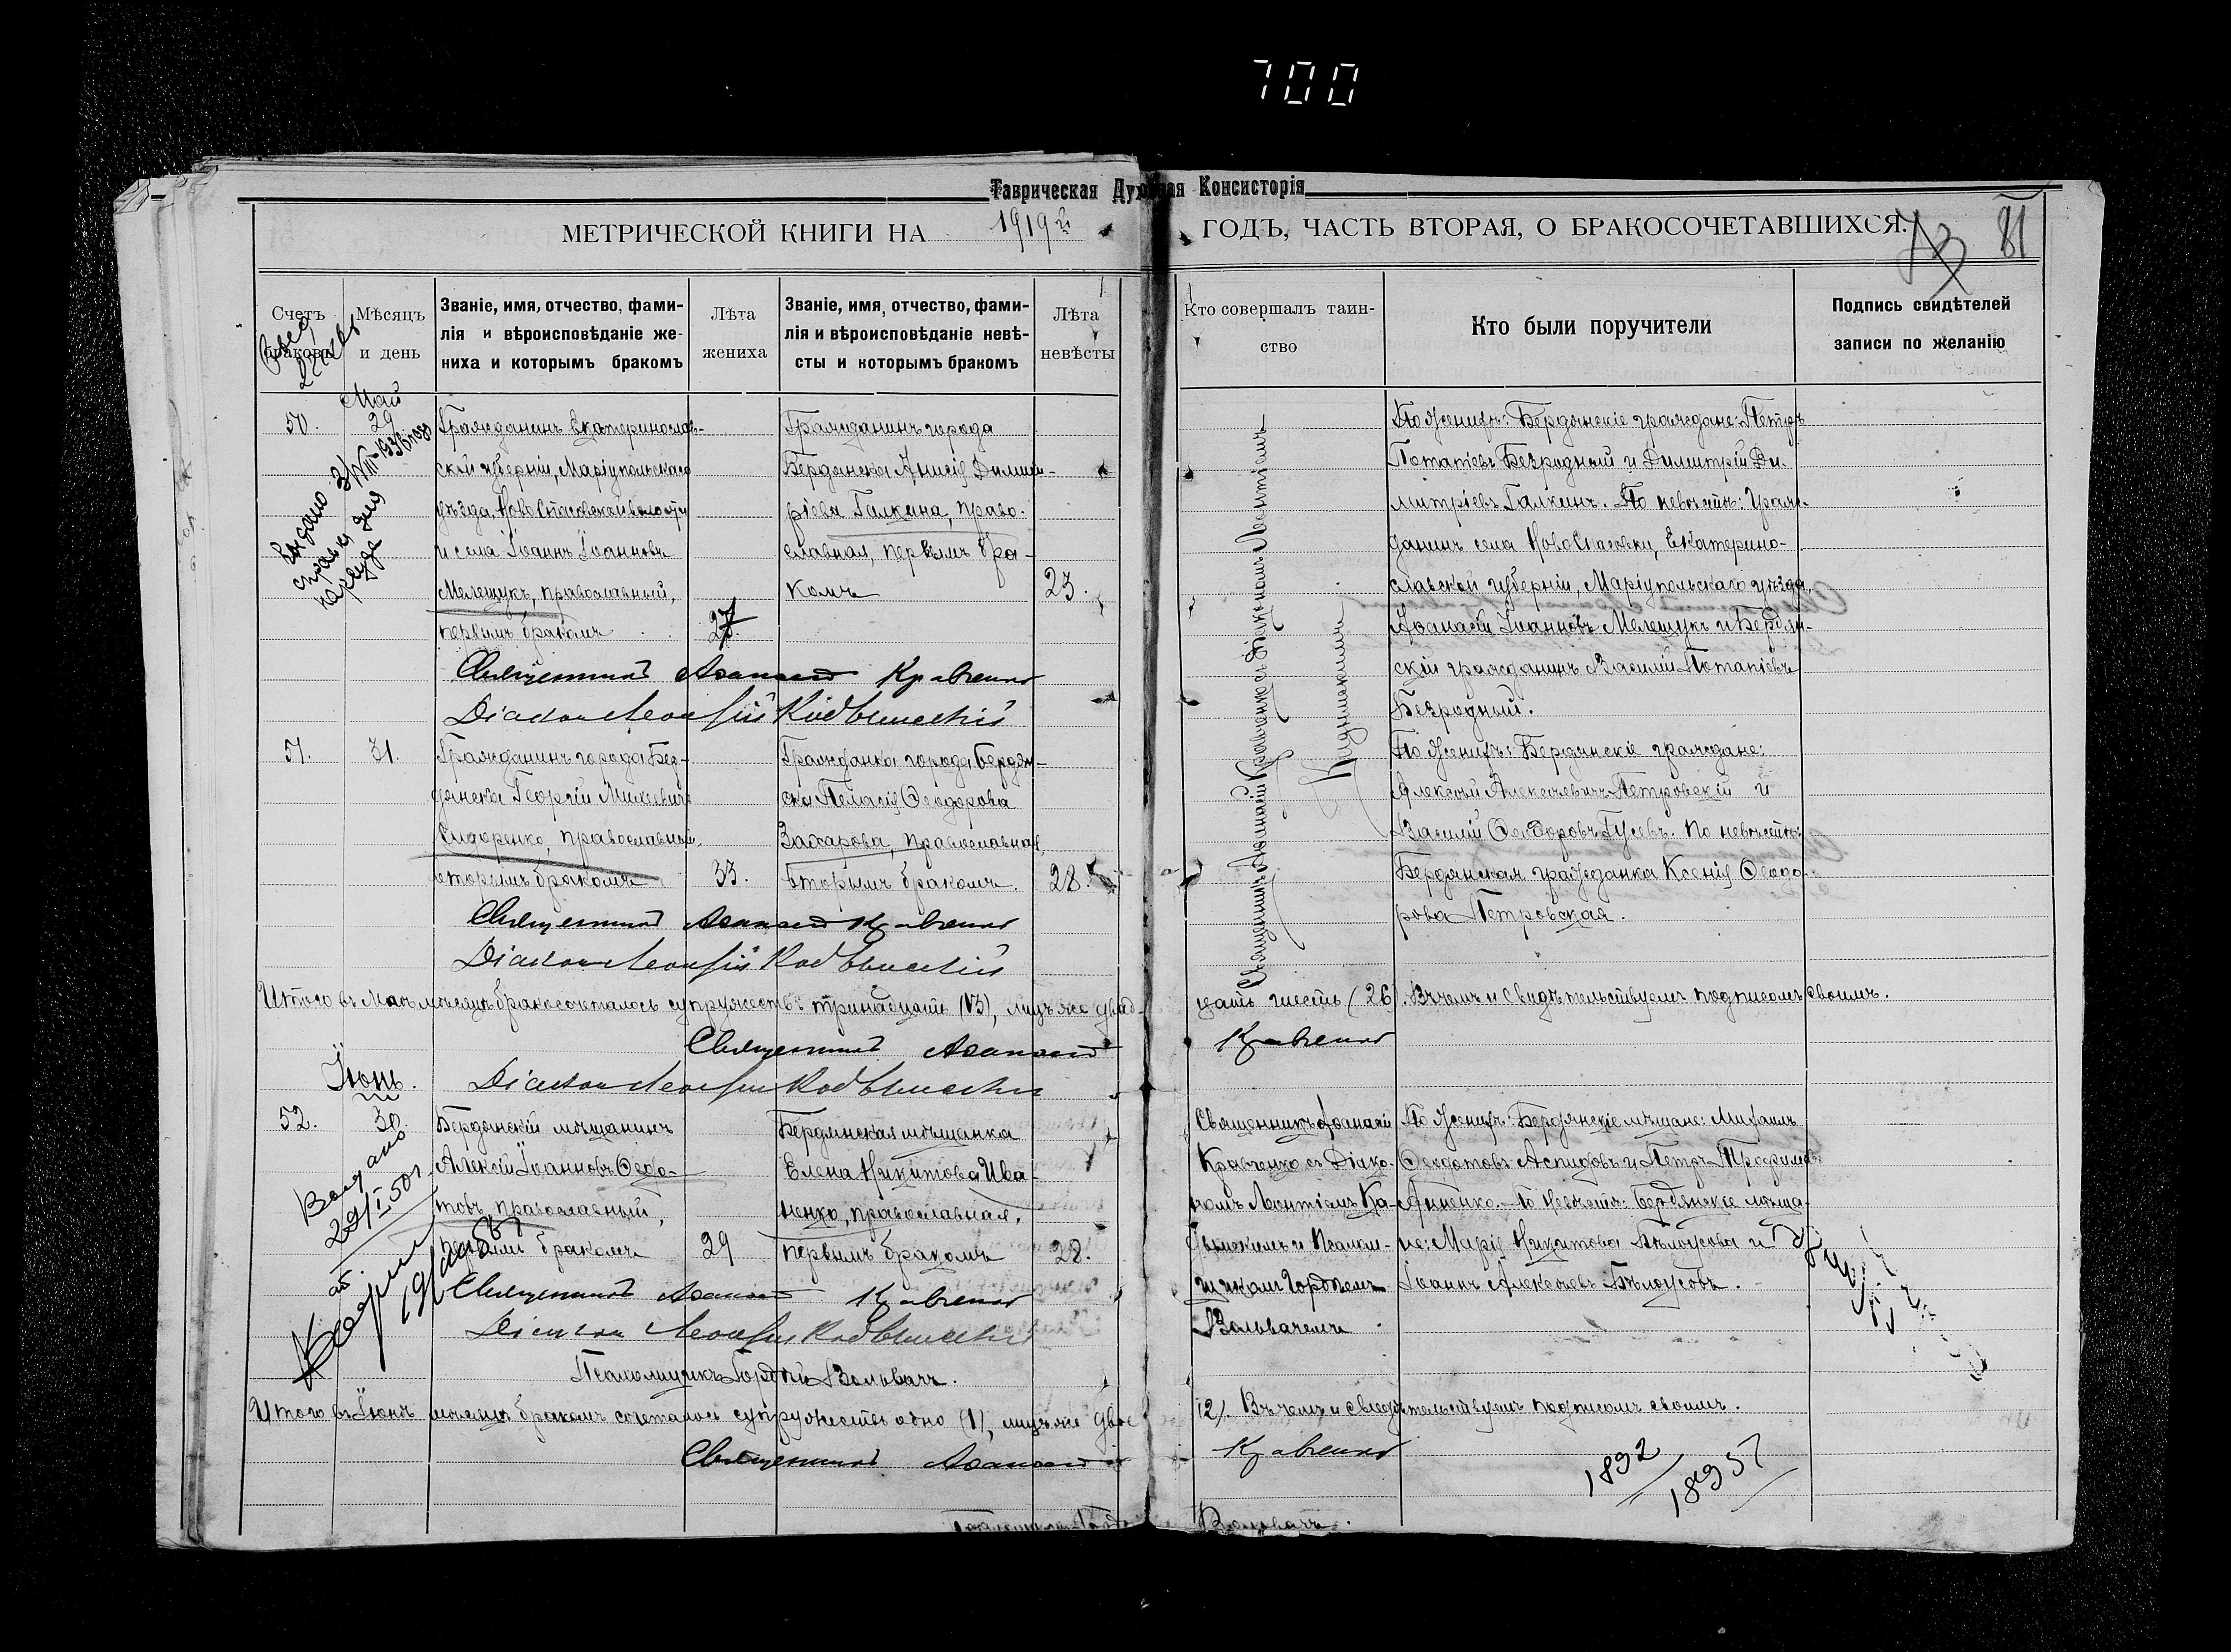 700
Таврическая Духовная Консисторія
МЕТРИЧЕСКОЙ КНИГИ НА 1919й ГОДЪ, ЧАСТЬ ВТОРАЯ, О БРАКОСОЧЕТАВШИХСЯ.
81
Счетъ браковъ
Мѣсяцъ и день
Званіе, имя, отчество, фами-
лія и вѣроисповѣданіе же-
ниха и которымъ бракомъ
Лѣта
жениха
Званіе, имя, отчество, фами-
лія и вѣроисповѣданіе невѣ-
сты и которымъ бракомъ
Лѣта
невѣсты
Кто совершалъ таин-
ство
Кто были поручители
Подпись свидѣтелей
записи по желанію
Май
50.
29
Гражданинъ Екатеринослав-
ской губерніи, Маріупольскаго
уѣзда, НовоСпасовской волости
и села Іоаннъ Іоанновъ
Мелещукъ, православный,
первымъ бракомъ
27
Гражданинъ города
Бердянска Анисія Димит-
ріева Галкина, право-
славная, первымъ бра-
комъ
23.
Священникъ Аѳанасій Кравченко съ Діакономъ Леонтіемъ
По женихѣ: Бердянскіе граждане: Петръ
Потапіевъ Безродный и Димитрій Ди-
митріевъ Галкинъ. По невѣстѣ: Граж-
данинъ села НовоСпасовки, Екатерино-
славской губерніи, Маріупольскаго уѣзда,
Аѳанасій Іоанновъ Мелещукъ и Бердян-
скій гражданинъ Василій Потапіевъ
Безродный.
Выдано
справка для
Священникъ Аѳанасій Кравченко
Діаконъ Леонтій
51.
31.
Гражданинъ города Бер-
дянска Георгій Михеевичъ
Сидоренко, православный,
вторымъ бракомъ
33.
Гражданка города Бердян-
ска Пелагія Ѳеодорова
Захарова, православная,
вторымъ бракомъ.
28.
По женихѣ: Бердянскіе граждане:
Алексѣй Алексѣевичъ Петровскій и
Василій Ѳеодоровъ Гусевъ. По невѣстѣ:
Бердянская гражданка Ксенія Ѳеодо-
рова Петровская.
Священникъ Аѳанасій Кравченко
Діаконъ Леонтій
Итого въ Маѣ мѣсяцѣ бракосочеталось супружествъ тринадцать (13), лицъ же двад-
цать шесть (26). Въ чемъ и свидѣтельствуемъ подписомъ своимъ.
Священникъ Аѳанасій Кравченко
Діаконъ Леонтій
Іюнь.
52.
30.
Бердянскій мѣщанинъ
Алексій Іоанновъ Ѳедо-
товъ, православный,
первымъ бракомъ
29
Бердянская мѣщанка
Елена Никитова Ива-
ненко, православная,
первымъ бракомъ
28.
Священникъ Аѳанасій
Кравченко съ Діако-
номъ Леонтіемъ
и Псалом-
щикомъ Гордіемъ
Вольвачемъ
По женихѣ: Бердянскіе мѣщане: Михаилъ
Ѳеодотовъ Аспидовъ и Петръ Трофимовъ
По невѣстѣ: Бердянскіе мѣща-
не: Марія Никитова Бѣлоусова и
Іоаннъ Алексѣевъ Бѣлоусовъ.
Выдано
29/I 50 г.
Священникъ Аѳанасій Кравченко
Діаконъ Леонтій
Псаломщикъ Гордій Вольвачъ.
Итого въ Іюнѣ мѣсяцѣ бракомъ сочеталось супружество одно (1), лицъ же двое
(2). Въ чемъ и свидѣтельствуемъ подписомъ своимъ.
Священникъ Аѳанасій Кравченко
1892
18957
Вольвачъ.